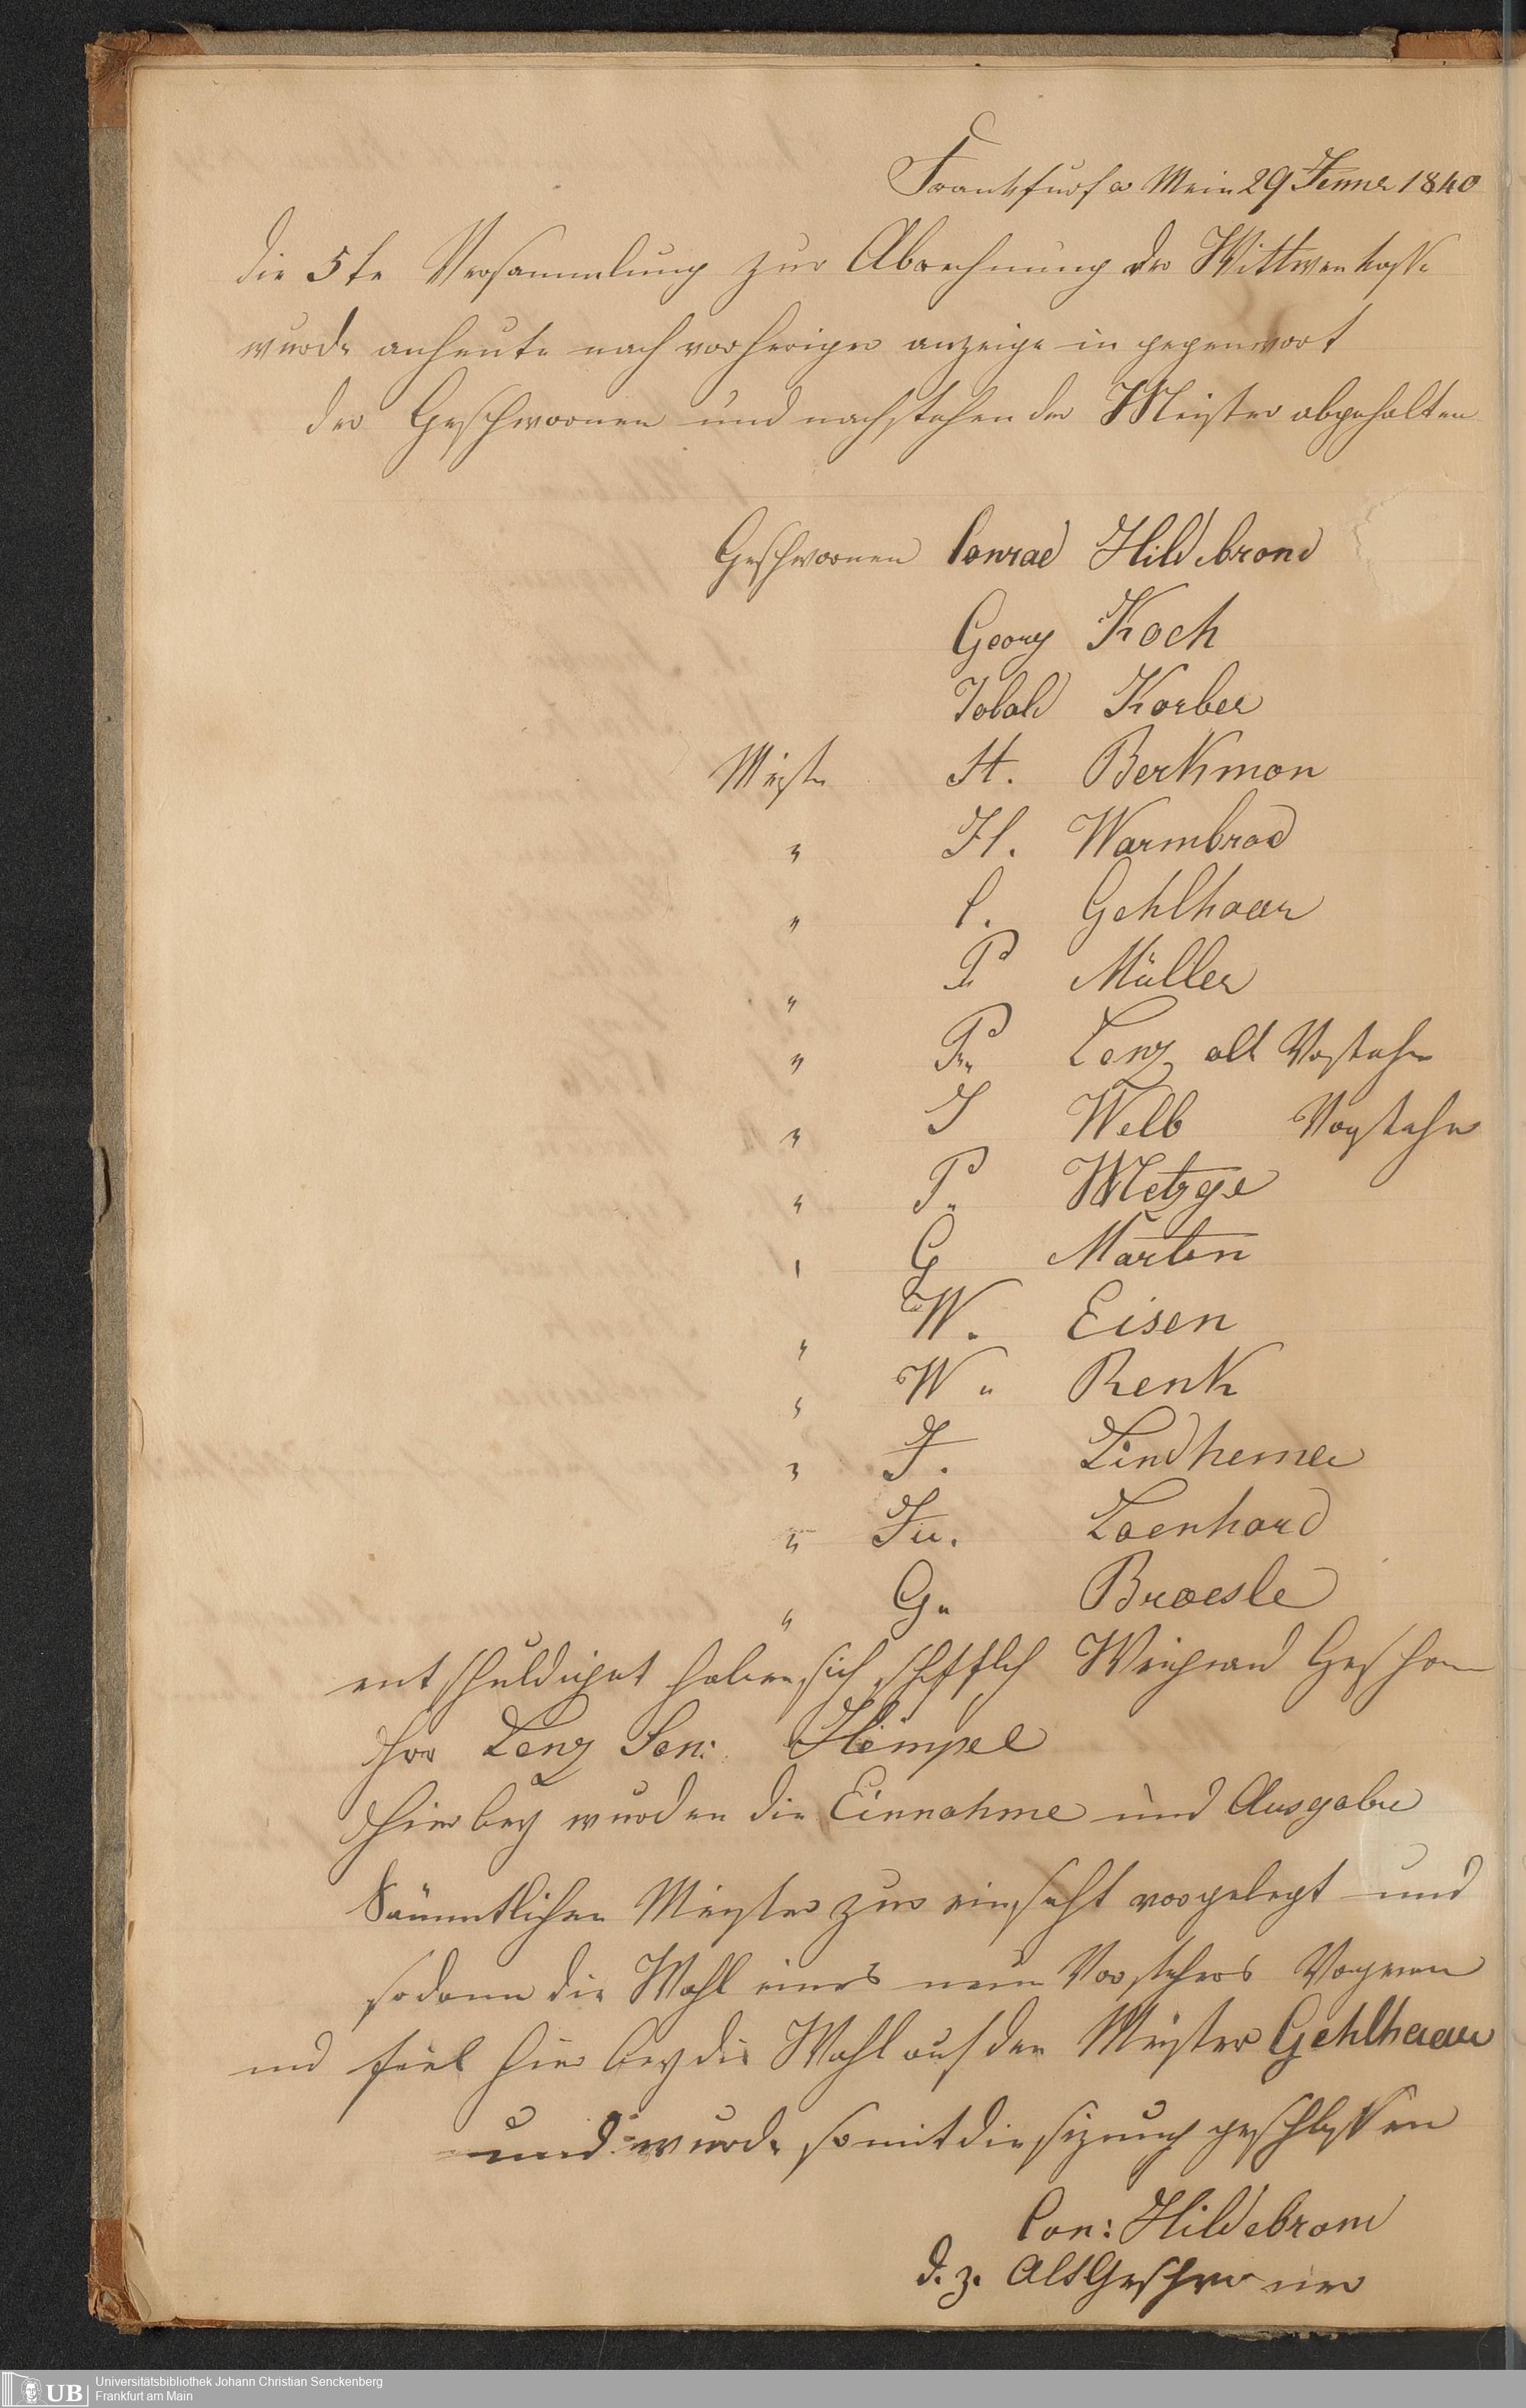 Frankfurt a Mein 29 Jenner 1840
die 5te Versammlung zur Abrechnung der Wittwenkasse
wurde anheute nach vorheriger anzeige in gegenwart
der Geschwornen und nachstehender Meister abgehalten
Geschwornen Conrad Hildebrand
Georg Koch
Korber
Meister H. Berkman
" H. Warmbrod
" C. Gehlhaar
" P Müller
" P. Lenz alt Vorsteher
" J Welb Vorsteher
" P. Metzge
" G Marten
" W. Eisen
" W. Renk
" F. Lindhemer
" Fr. Laenhard
" G. Braesle
entschuldiget haben sich schriftlich Weigand
Herr Lenz Sen: Himpel
Hierbey wurden die Einnahme und Ausgabe
Sämmtlichen Meister zur einsicht vorgelegt und
sodann die Wahl eines neuen Vorstehers
und fiel hier bey die Wahl auf den Meister Gehlhaar
und wurde somit die sizung geschlossen
Con: Hildebrand
d. z. Alt Geschworner